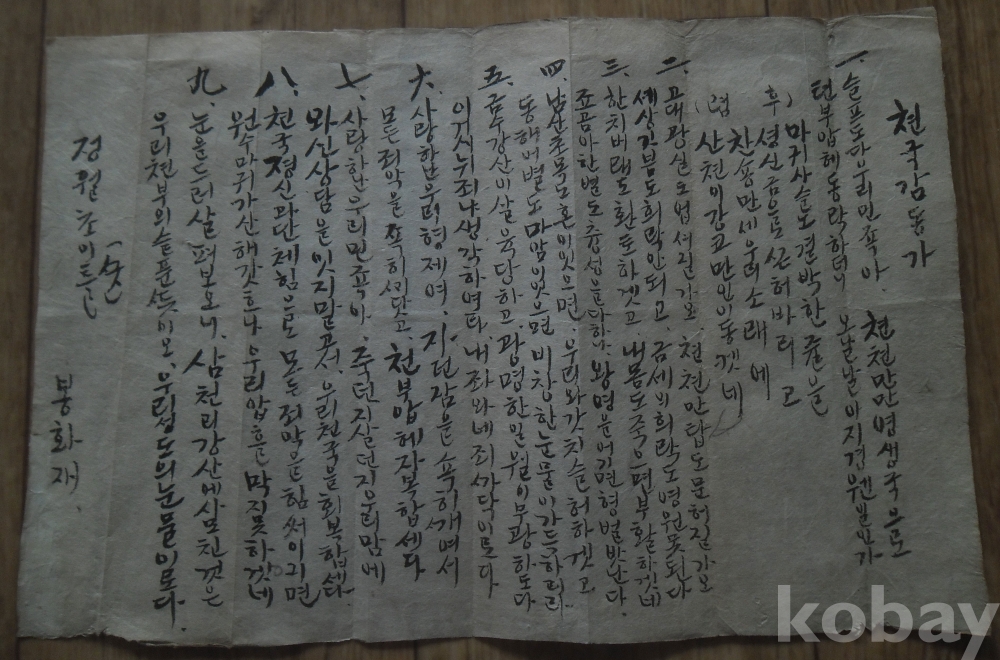 천국감동가
一. 슬프도다우리민족아. 천천만만영생국으로
텬부압헤동락하더니 오날날이지경웬일인가
후
렴
마귀사슬노결박한줄을
성신금능로 허바리고
찬송만세우리소래에
산천이강코만인이동겟네
二. 고대광실도업셔진가보. 천천만답도문허질가보
셰상가봄도희락안되고. 금세비희락도영원못되다
三. 한치버레도환토하겟고 내몸도죽으면부활하겟네
죠곰아한별도즁성을다하. 왕명을어긴형벌반난다.
四. 남산초목도혼이잇으면. 우리와가치슬허하겟고
동해어별도마암잇으면 비창한눈물이가득하리라
五. 금수강산이살육당하고 광명한일월이무광하도다
이거시뉘죄냐생각하여라. 내죄와네죄까닥이로다
六. 사랑하난우리형제여. 지던잠을속히깨여서
모든죄악을 하고 텬부압헤자복합세다
七. 사랑한우리민족아. 죽던지살던지우리맘에
와신상담을잇지말고서. 우리천국을회복합세다.
八. 천국정신과단체힘으로 모든죄악을힘써이긔면
원수마귀가산해갓흐나 우리압흘막지못하겟네
九. 눈을드러살펴보오니. 삼천리강산에사모친것은
우리천부의슬픈뜻이오. 우리성도의눈물이로다.
정월초이틀
봉화재.
kobay